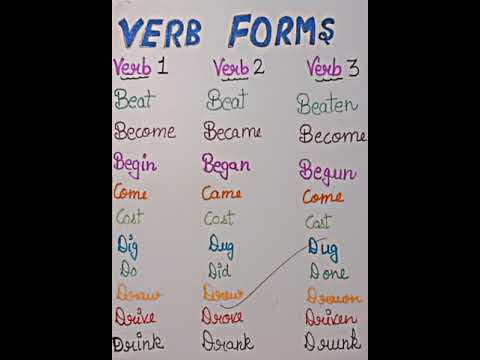 VERB FORMS
Verb 1 Verb 2 Verb 3
Beat Beat Beaten
Become Became Become
Begin Began Begun
Come Came Come
Cost Cost Cost
Dig Dug Dug
Do Did Done
Draw Drew Drawn
Drive Drove Driven
Drink Drank Drunk